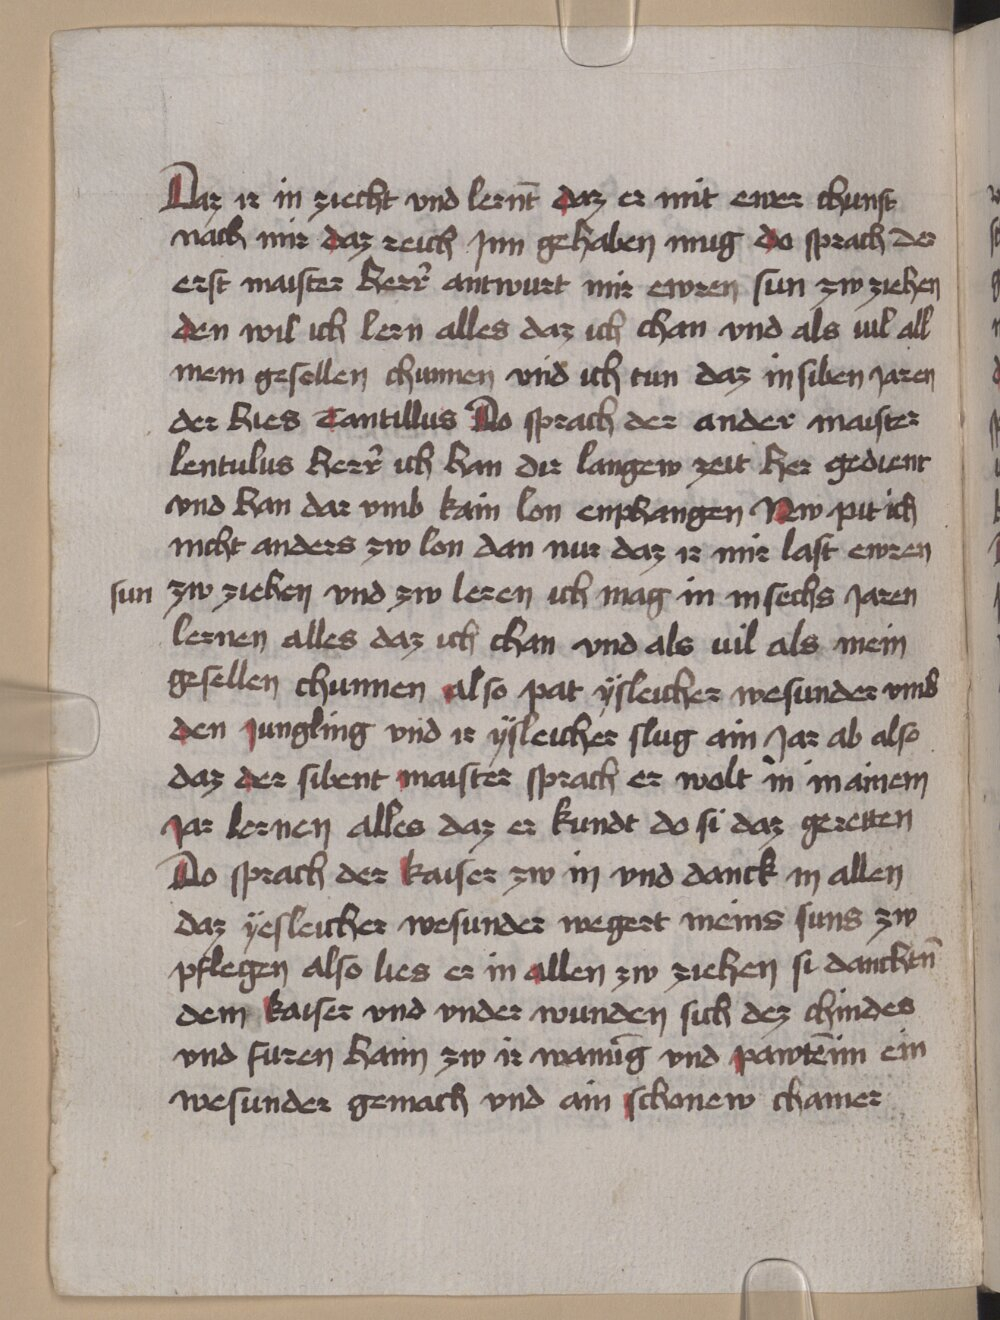 Daz ir in ziecht vnd lernt̄ daz er mit ewer chunst
nach mir daz reich Inn gehaben mug do sprach der
erst maister herr̄ antwurt mir ewren sun zw ziehen
den wil ich lern alles daz ich chan vnd als uil all
mein gesellen chunnen vnd ich tun daz in siben Jaren
der hies Tantillus Do sprach der ander maister
lentulus herr̄ ich han dir langew zeit her gedient
vnd han dar vmb kain lon enphangen New pit ich
nicht anders zw lon dan nur daz ir mir last ewren
sun zw ziehen vnd zw leren ich mag in in sechs Jaren
lernen alles daz ich chan vnd als uil als mein
gesellen chunnen also pat ÿsleicher wesunder vmb
den Jungling vnd ir ÿsleicher slug ain Jar ab also
daz der sibent maister sprach er wolt in in ainem
Jar lernen alles daz er kundt do si daz geretten
Do sprach der kaiser zw in vnd danck in allen
daz ÿesleicher wesunder wegert meins suns zw
pflegen also lies er in allen zw ziehen si danckten̄
dem kaiser vnd vnder wunden sich dez chindes
vnd furen haim zw ir wanūg vnd pawtēim ein
wesunder gemach vnd ain schonew chamer